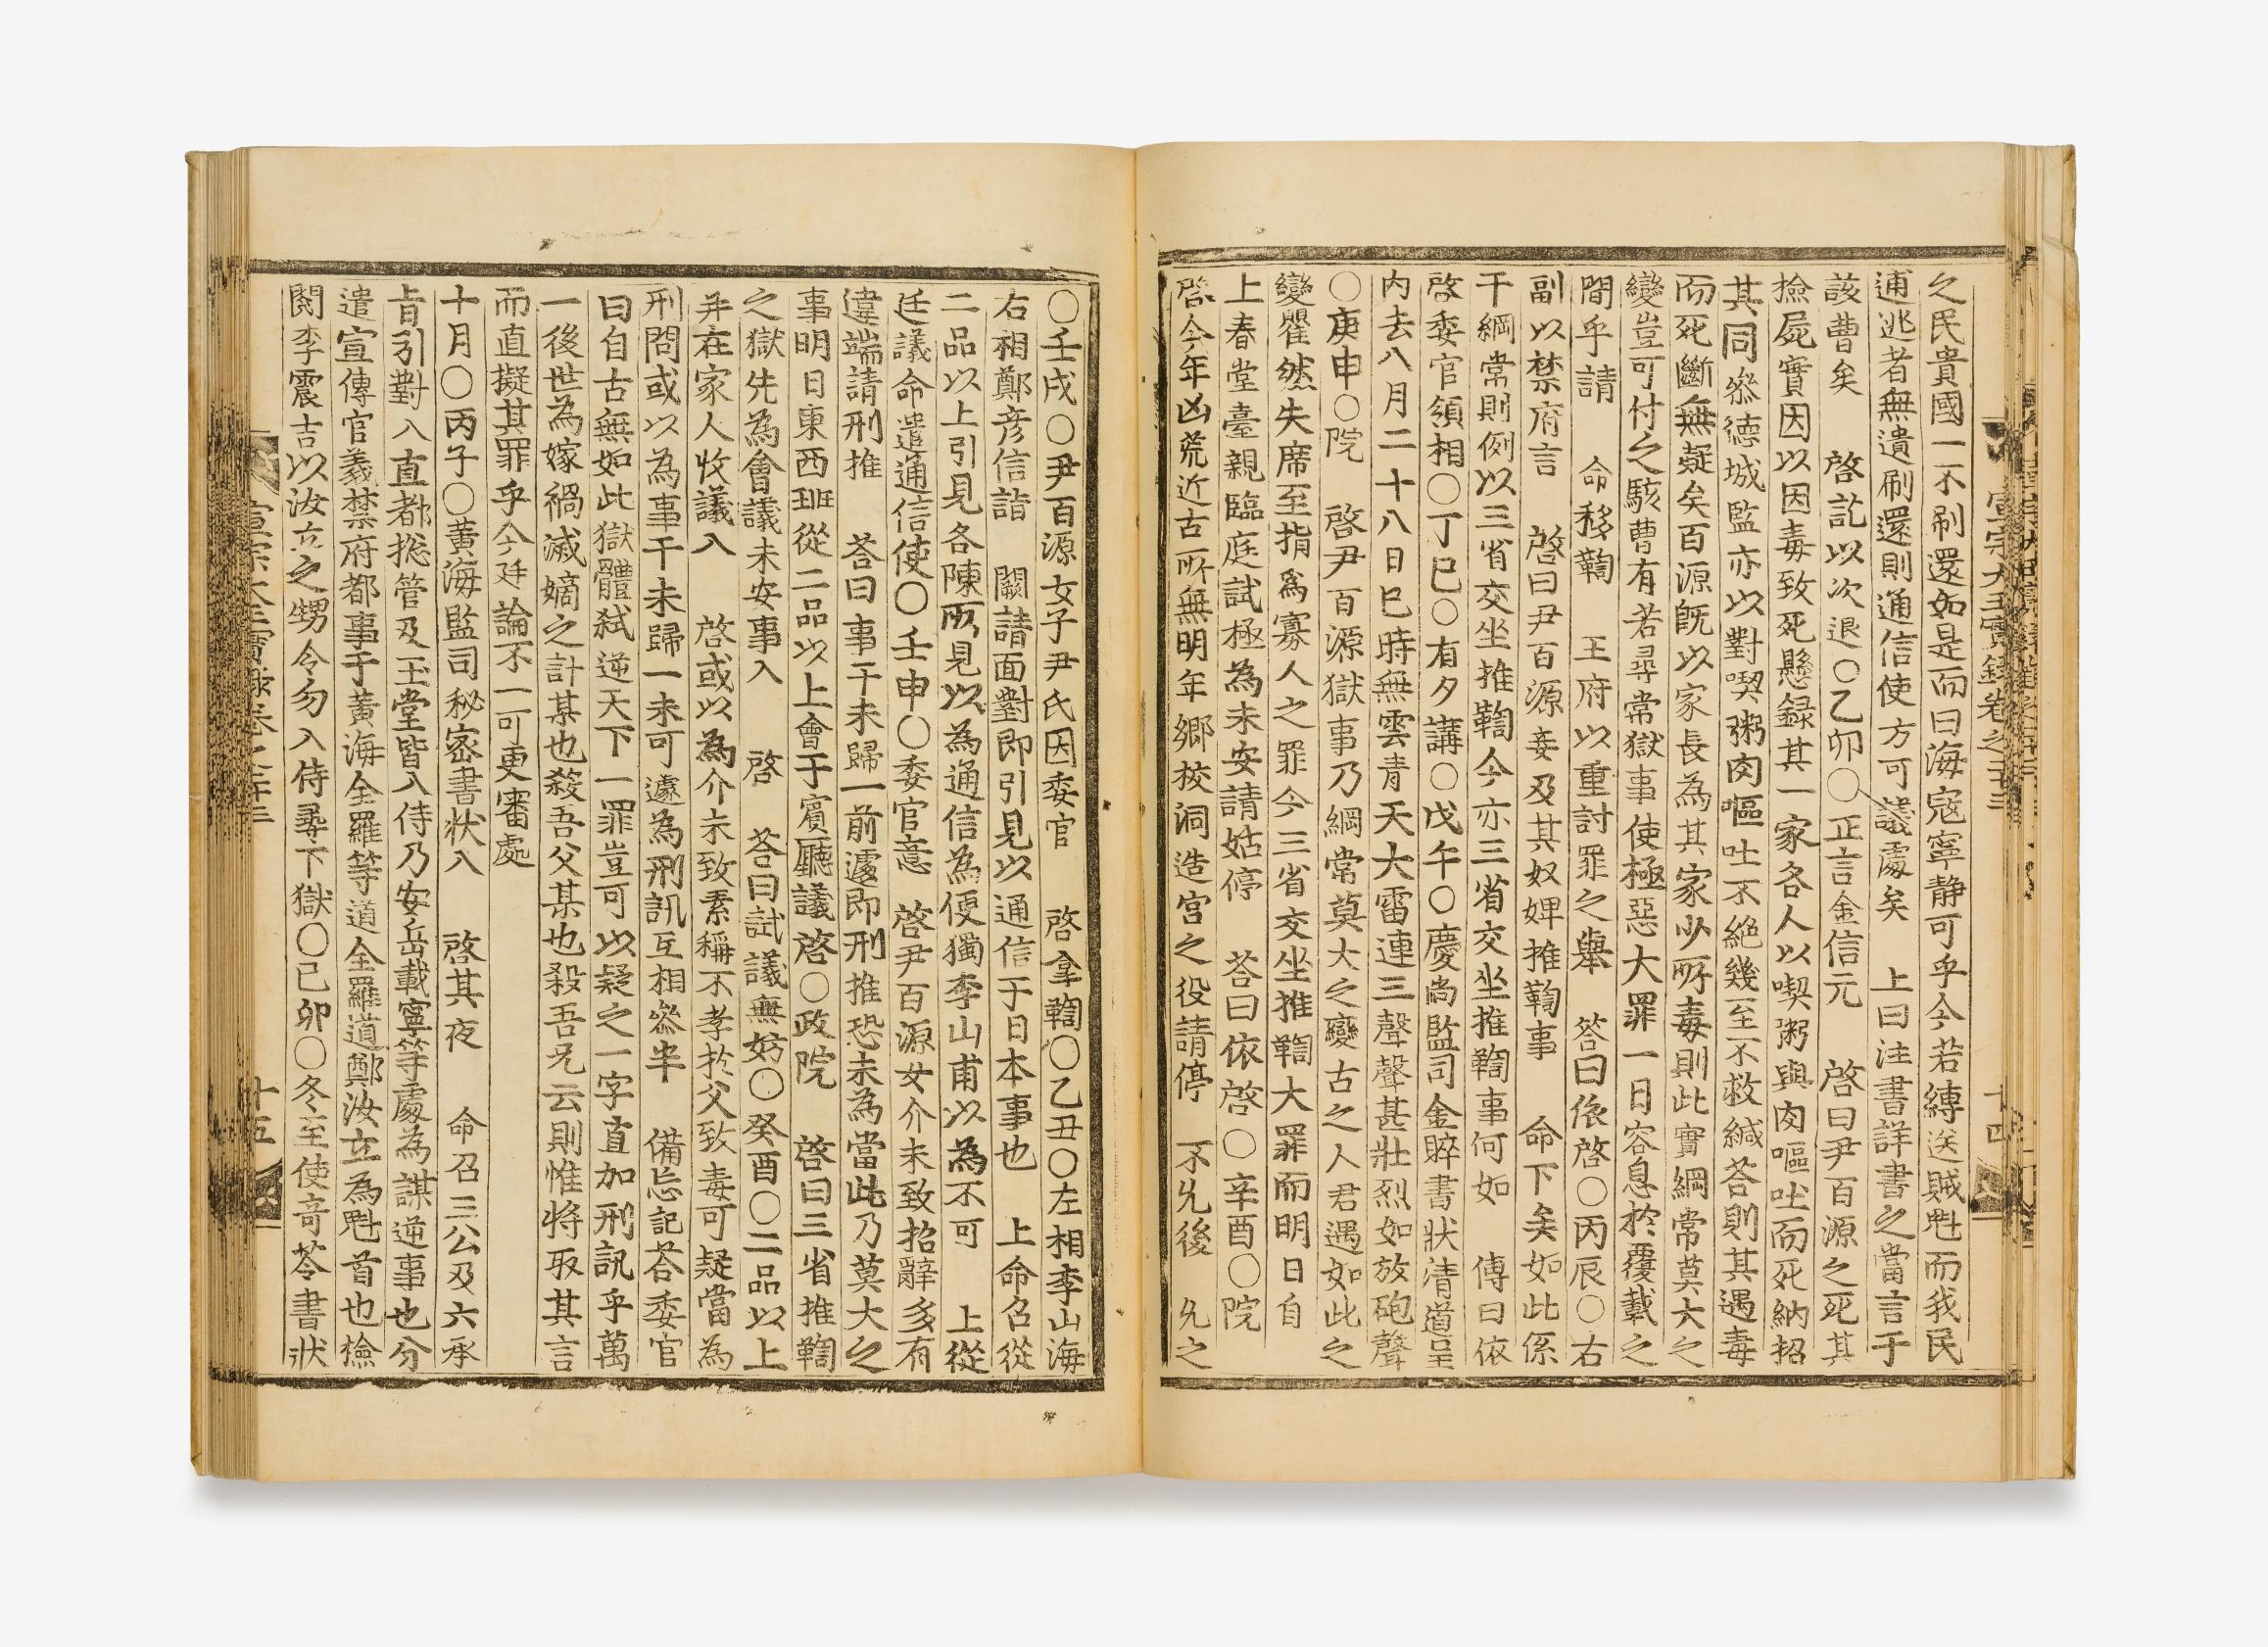 宣宗大王實錄卷之二十三
十四
之民貴國一不刷還如是而曰海寇寧靜可乎今若縛送賊魁而我民
逋逃者無遺刷還則通信使方可議處矣 上曰注書詳書之當言于
該曹矣 啓訖以次退○乙卯○正言金信元 啓曰尹百源之死其
撿屍實因以因毒致死懸録其一家各人以喫粥與肉嘔吐而死納招
其同叅德城監亦以對喫粥肉嘔吐不絶幾至不救緘荅則其遇毒
而死斷無疑矣百源旣以家長為其家少所毒則此實綱常莫大之
變豈可付之駭曹有若尋常獄事使極惡大罪一日容息於覆載之
間乎請 命移鞫 王府以重討罪之擧 答曰依啓○丙辰○右
副以禁府言 啓曰尹百源妾及其奴婢推鞫事 命下矣如此係
干綱常則例以三省交坐推鞫今亦三省交坐推鞫事何如 傳曰依
啓委官領相○丁巳○有夕講○戊午○慶尙監司金睟書狀清道呈
內去八月二十八日巳時無雲青天大雷連三聲聲甚壯烈如放砲聲
○庚申○院 啓尹百源獄事乃綱常莫大之變古之人君遇如此之
變瞿然失席至指爲寡人之罪今三省交坐推鞫大罪而明日自
上春堂臺親臨庭試極為未安請姑停 荅曰依啓○辛酉○院
啓今年凶荒近古所無明年鄕校洞造宮之役請停 不允後 允之
○壬戌○尹百源女子尹氏因委官 啓拿鞫○乙丑○左相李山海
右相鄭彦信詣 闕請面對即引見以通信于日本事也 上命召從
二品以上引見各陳所見以為通信為便獨李山甫以為不可 上從
廷議命遣通信使○壬申○委官意 啓尹百源女介未致招辭多有
違端請刑推 荅曰事干未歸一前遽即刑推恐未為當此乃莫大之
事明日東西班從二品以上會于賓廳議啓○政院 啓曰三省推鞫
之獄先為會議未安事入 啓 荅曰試議無妨○癸酉○二品以上
并在家人收議入 啓或以為介未致素稱不孝於父致毒可疑當為
刑問或以為事干未歸一未可遽為刑訊互相叅半 備忘記荅委官
曰自古無如此獄體弑逆天下一罪豈可以疑之一字直加刑訊乎萬
一後世為嫁禍滅嫡之計某也殺吾父某也殺吾兄云則惟將取其言
而直擬其罪乎今廷論不一可更審處
十月○丙子○黃海監司秘密書狀入 啓其夜 命召三公及六承
旨引對入直都摠管及玉堂皆入侍乃安岳載寧等處為謀逆事也分
遣宣傳官義禁府都事于黃海全羅等道全羅道鄭汝立為魁首也撿
閱李震吉以汝立之甥令勿入侍尋下獄○己卯○冬至使竒苓書狀
宣宗大王實錄卷之二十三
十五